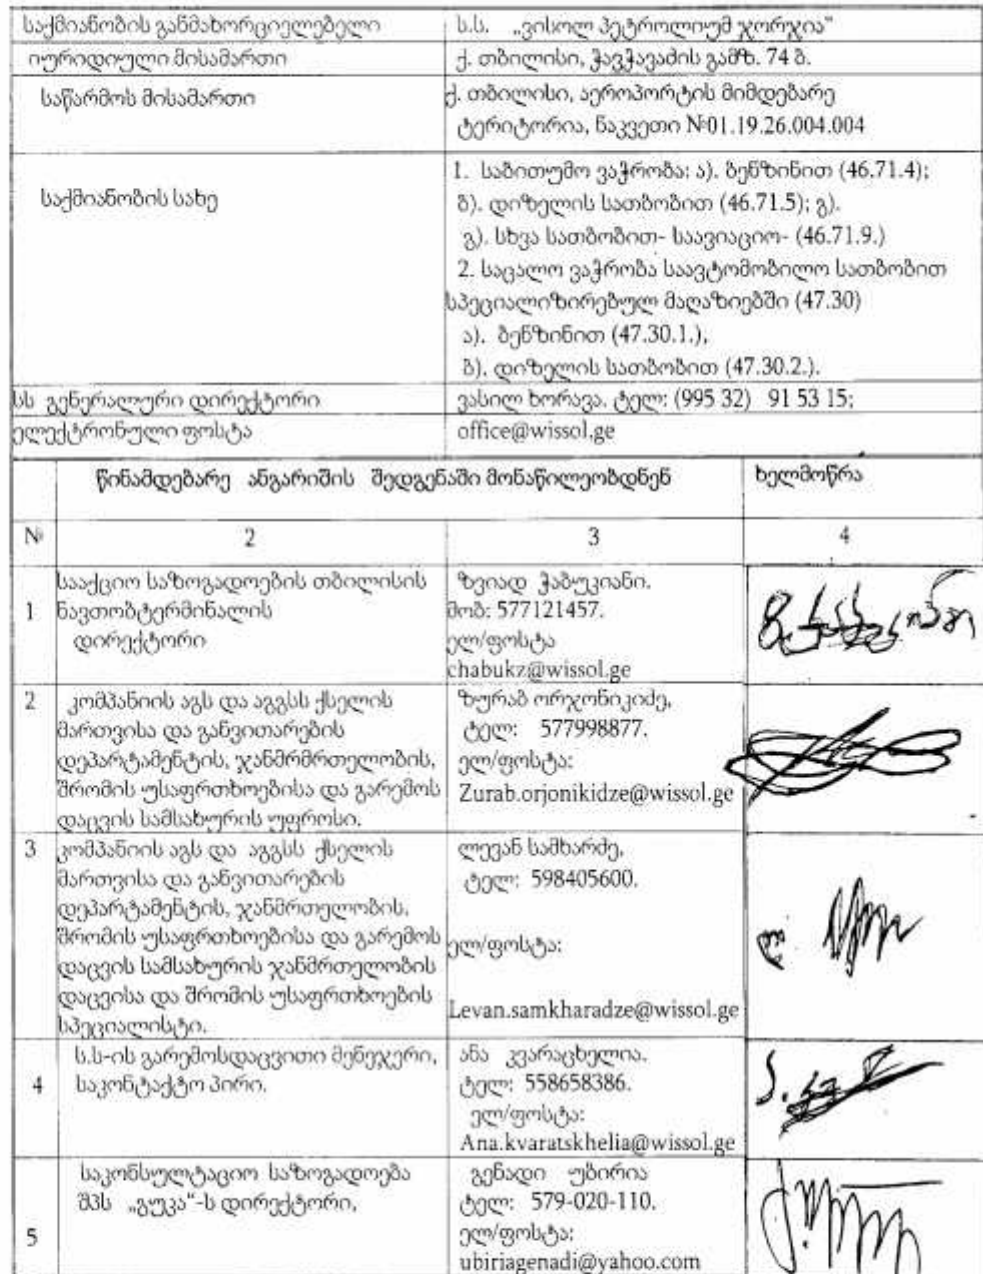 საქმიანობის განმახორციელებელი ს.ს. „ვისოლ პეტროლიუმ ჯორჯია“
იურიდიული მისამართი ქ. თბილისი, ჭავჭავაძის გამზ. 74 ბ.
საწარმოს მისამართი ქ. თბილისი, აეროპორტის მიმდებარე
ტერიტორია, ნაკვეთი №01.19.26.004.004
საქმიანობის სახე
1. საბითუმო ვაჭრობა: ა). ბენზინით (46.71.4);
ბ). დიზელის სათბობით (46.71.5); გ).
გ). სხვა სათბობით- საავიაციო- (46.71.9.)
2. საცალო ვაჭრობა საავტომობილო სათბობით
სპეციალიზირებულ მაღაზიებში (47.30)
ა). ბენზინით (47.30.1.),
ბ). დიზელის სათბობით (47.30.2.).
სს გენერალური დირექტორი ვასილ ხორავა. ტელ: (995 32) 91 53 15;
ელექტრონული ფოსტა office@wissol.ge
წინამდებარე ანგარიშის შედგენაში მონაწილეობდნენ ხელმოწრა
№ 2 3 4
1
სააქციო საზოგადოების თბილისის
ნავთობტერმინალის
დირექტორი
ზვიად ჭაბუკიანი.
მობ: 577121457.
ელ/ფოსტა
chabukz@wissol.ge
2
კომპანიის აგს და აგგსს ქსელის
მართვისა და განვითარების
დეპარტამენტის, ჯანმრმრთელობის,
შრომის უსაფრთხოებისა და გარემოს
დაცვის სამსახურის უფროსი.
ზურაბ ორჯონიკიძე,
ტელ: 577998877.
ელ/ფოსტა:
Zurab.orjonikidze@wissol.ge
3
კომპანიის აგს და აგგსს ქსელის
მართვისა და განვითარების
დეპარტამენტის, ჯანმრთელობის,
შრომის უსაფრთხოებისა და გარემოს
დაცვის სამსახურის ჯანმრთელობის
დაცვისა და შრომის უსაფრთხოების
სპეციალისტი.
ლევან სამხარძე,
ტელ: 598405600.
ელ/ფოსტა:
Levan.samkharadze@wissol.ge
4
ს.ს-ის გარემოსდაცვითი მენეჯერი,
საკონტაქტო პირი.
ანა კვარაცხელია.
ტელ: 558658386.
ელ/ფოსტა:
Ana.kvaratskhelia@wissol.ge
5
საკონსულტაციო საზოგადოება
შპს „გუკა“-ს დირექტორი,
გენადი უბირია
ტელ: 579-020-110.
ელ/ფოსტა:
ubiriagenadi@yahoo.com